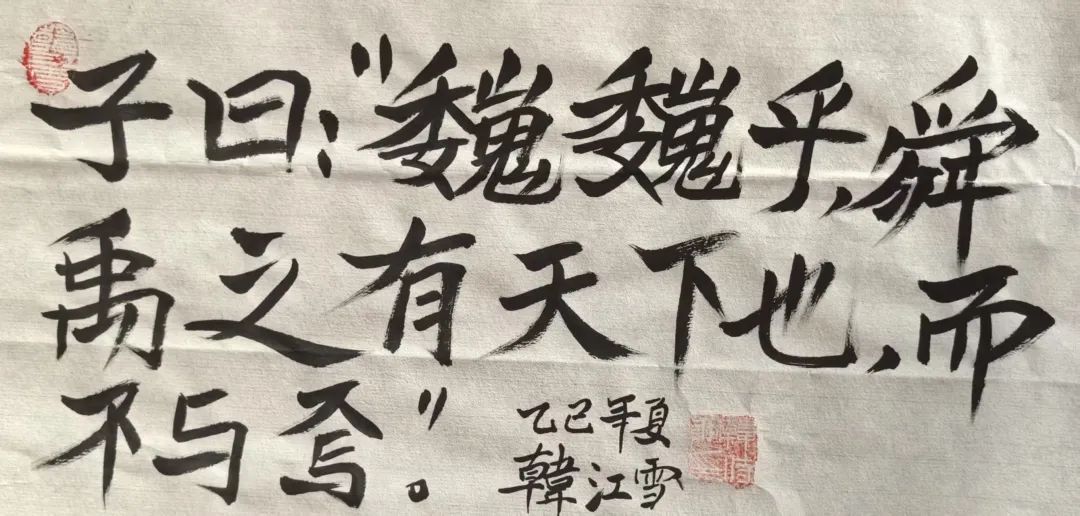 子曰：“巍巍乎，舜
禹之有天下也，而
不与焉。”
乙巳年夏
韓江雪